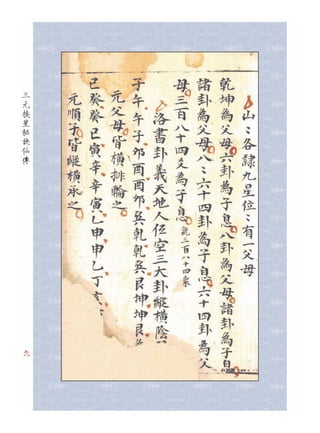 山：各隸九星位：有一父母
乾坤為父母六卦為子息八卦為父母諸卦為子息
諸卦為父母八：六十四卦為子息六十四卦為父
母三百八十四爻為子息就三百八十四爻
洛書卦義天地人位空三大卦縱橫陰
子午午子卯酉酉卯巽乾乾巽艮坤坤艮
元父母皆橫排輪之
巳癸癸巳寅辛辛寅乙申申乙丁亥
元順子皆縱橫承之
三元挨星秘訣仙傳
九